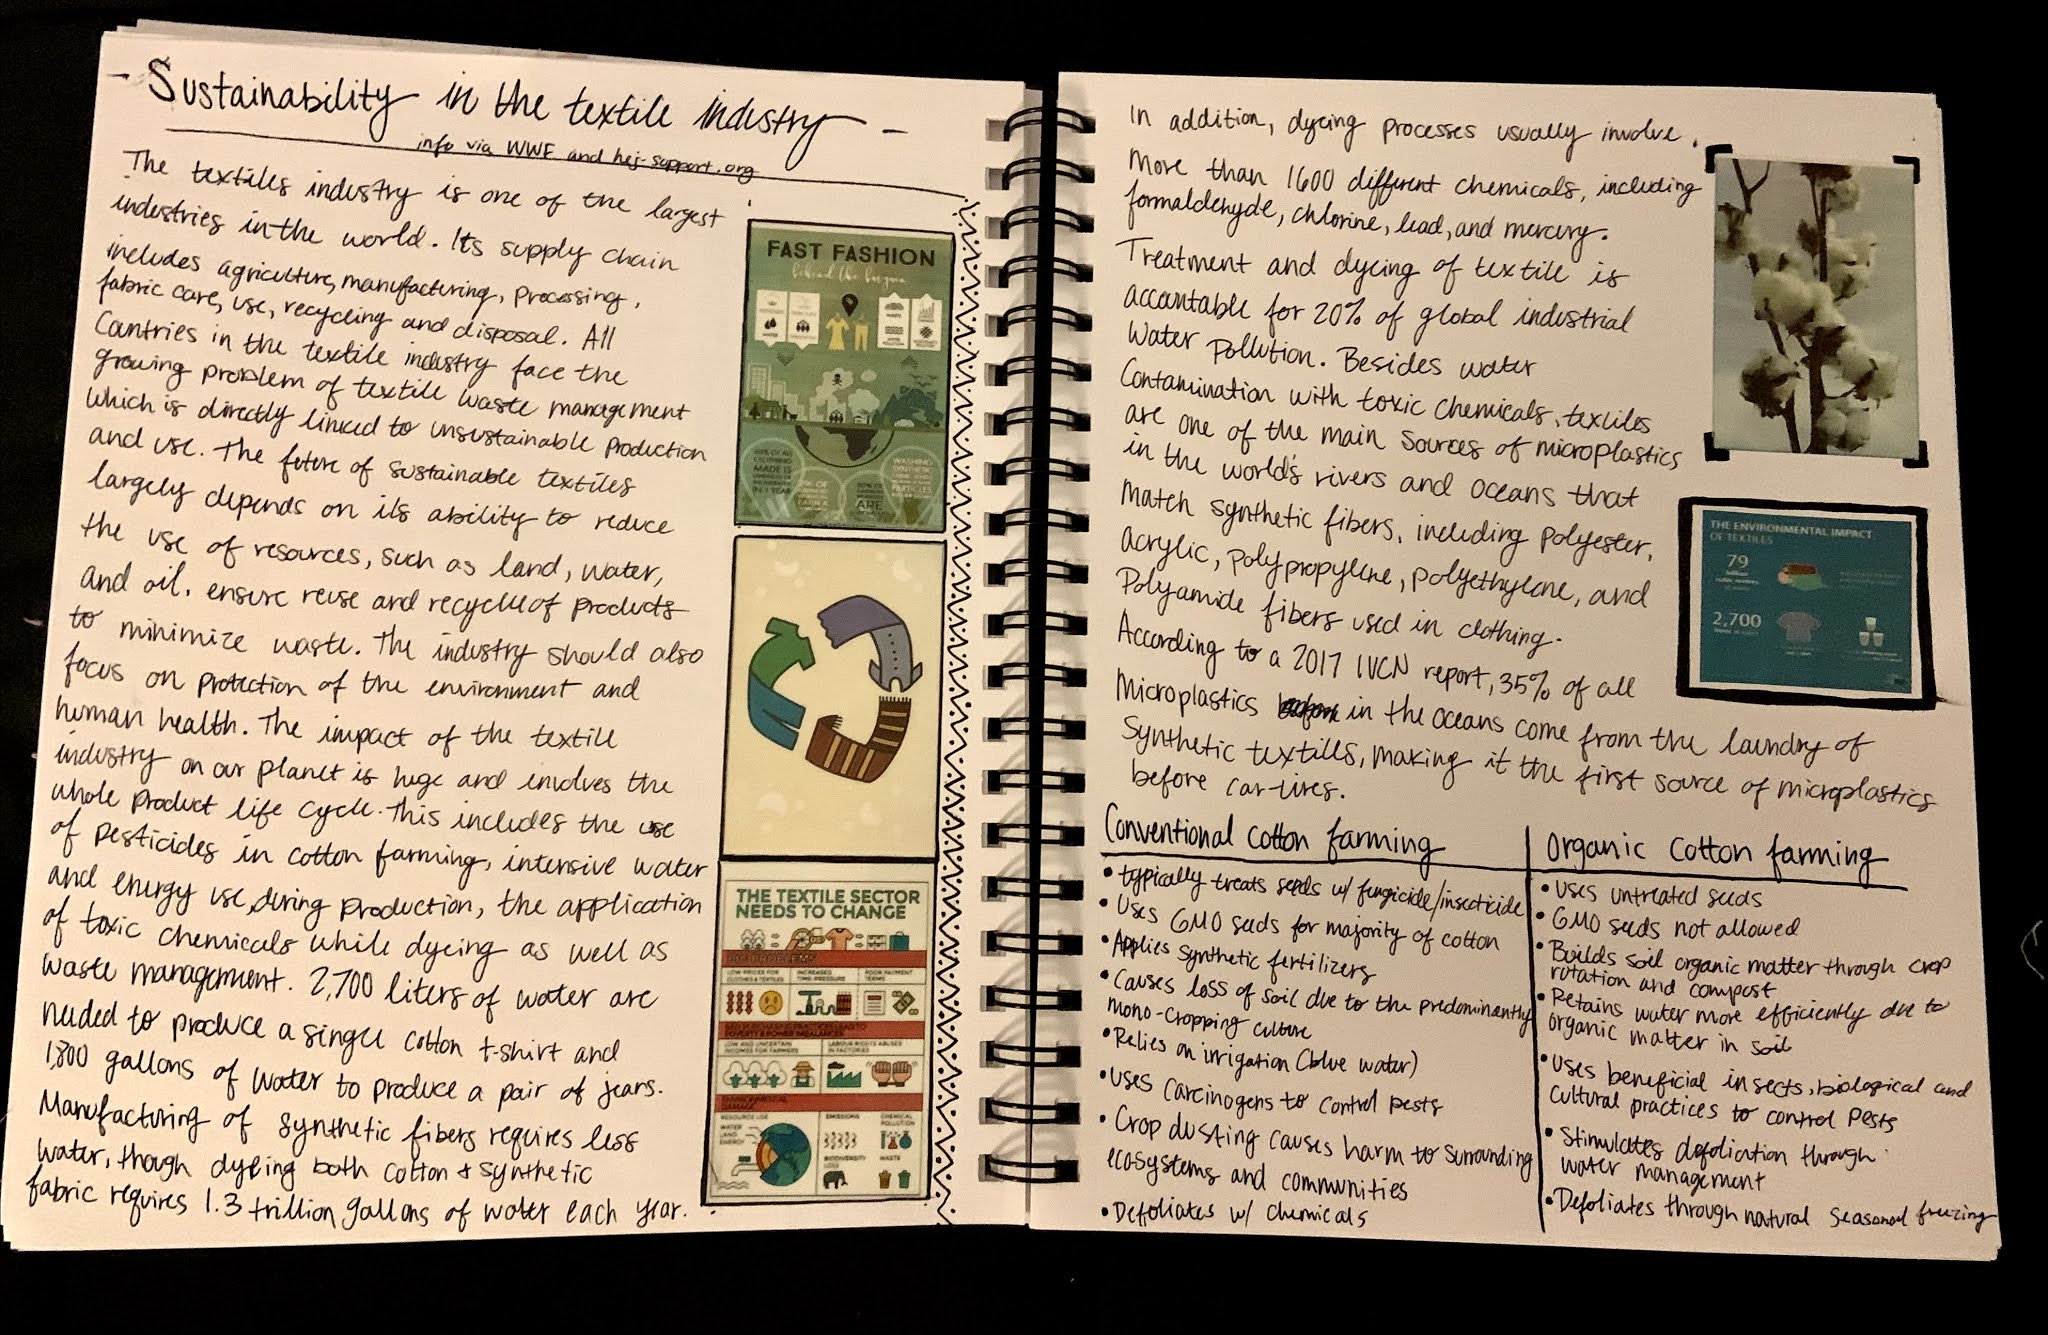 - Sustainability in the textile industry -
info via WWF and hej-support.org
The textiles industry is one of the largest
industries in the world. Its supply chain
includes agriculture, manufacturing, processing,
fabric care, use, recycling and disposal. All
Countries in the textile industry face the
growing problem of textile waste management
which is directly linked to unsustainable production
and use. The future of sustainable textiles
largely depends on its ability to reduce
the use of resources, such as land, water,
and oil, ensure reuse and recycle of products
to minimize waste. The industry should also
focus on protection of the environment and
human health. The impact of the textile
industry on our planet is huge and involves the
whole product life cycle. This includes the use
of pesticides in cotton farming, intensive water
and energy use, during production, the application
of toxic chemicals while dyeing as well as
waste management. 2,700 liters of water are
needed to produce a single cotton t-shirt and
1,800 gallons of water to produce a pair of jeans.
Manufacturing of synthetic fibers requires less
water, though dyeing both cotton & synthetic
fabric requires 1.3 trillion gallons of water each year.
FAST FASHION
MADE IS
IN 1 YEAR
WASHING
SYNTHETIC
PARTICLES
ARE
THE TEXTILE SECTOR
NEEDS TO CHANGE
BIG PROBLEMS
LOW PRICES FOR
CLOTHES & TEXTILES
INCREASED
TIME-PRESSURE
POOR PAYMENT
TERMS
POVERTY & POWER IMBALANCES
LOW AND UNCERTAIN
INCOMES FOR FARMERS
LABOUR RIGHTS ABUSES
IN FACTORIES
ENVIRONMENTAL
DAMAGE
RESOURCE USE
WATER
LAND
ENERGY
EMISSIONS
CHEMICAL
POLLUTION
BIODIVERSITY
LOSS
WASTE
In addition, dyeing processes usually involve
More than 1600 different chemicals, including
formaldehyde, chlorine, lead, and mercury.
Treatment and dyeing of textile is
accountable for 20% of global industrial
water pollution. Besides water
Contamination with toxic chemicals, textiles
are one of the main sources of microplastics
in the world's rivers and oceans that
match synthetic fibers, including polyester,
acrylic, polypropylene, polyethylene, and
Polyamide fibers used in clothing.
According to a 2017 IVCN report, 35% of all
Microplastics in the oceans come from the laundry of
Synthetic textiles, making it the first source of microplastics
before car-tires.
THE ENVIRONMENTAL IMPACT
OF TEXTILES
79
2,700
Conventional cotton farming
• typically treats seeds w/ fungicide/insecticide
• Uses GMO seeds for majority of cotton
• Applies synthetic fertilizers
• Causes loss of soil due to the predominantly
mono-cropping culture
• Relies on irrigation (blue water)
• uses carcinogens to control pests
• Crop dusting causes harm to surrounding
ecosystems and communities
• Defoliates w/ chemicals
Organic cotton farming
• Uses untreated seeds
• GMO seeds not allowed
• Builds soil organic matter through crop
rotation and compost
• Retains water more efficiently due to
organic matter in soil
• Uses beneficial insects, biological and
cultural practices to control pests
• Stimulates defoliation through
water management
• Defoliates through natural seasonal freezing